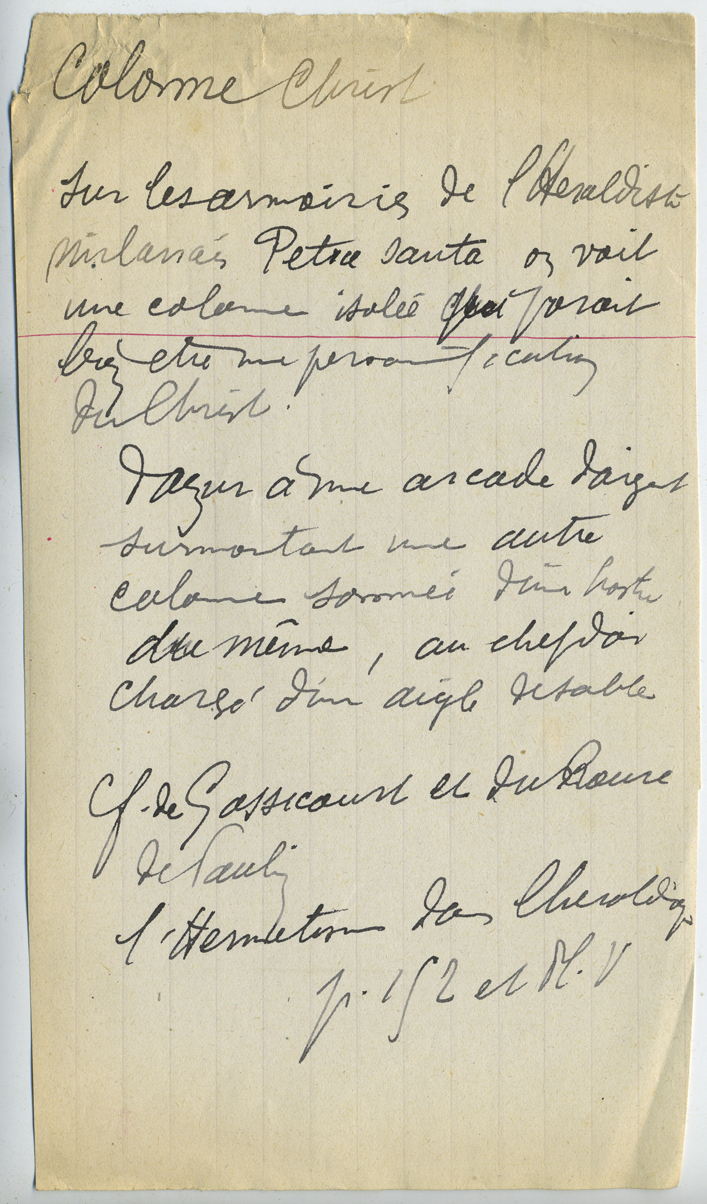 Colonne Christ
Sur les armoiries de l'Heraldiste
milanais Petra santa on voit
une colonne isolée qui parait
bien etre une personnification
du Christ.
d'azur à une arcade d'argent
surmontant une autre
colonne sommée d'une hostie
du même, au chef d'or
chargé d'un aigle de sable
Cf. de Gassicourt et du Roure
de Paulin
l'Hermetisme dans l'heraldique
p. 152 et Pl. V